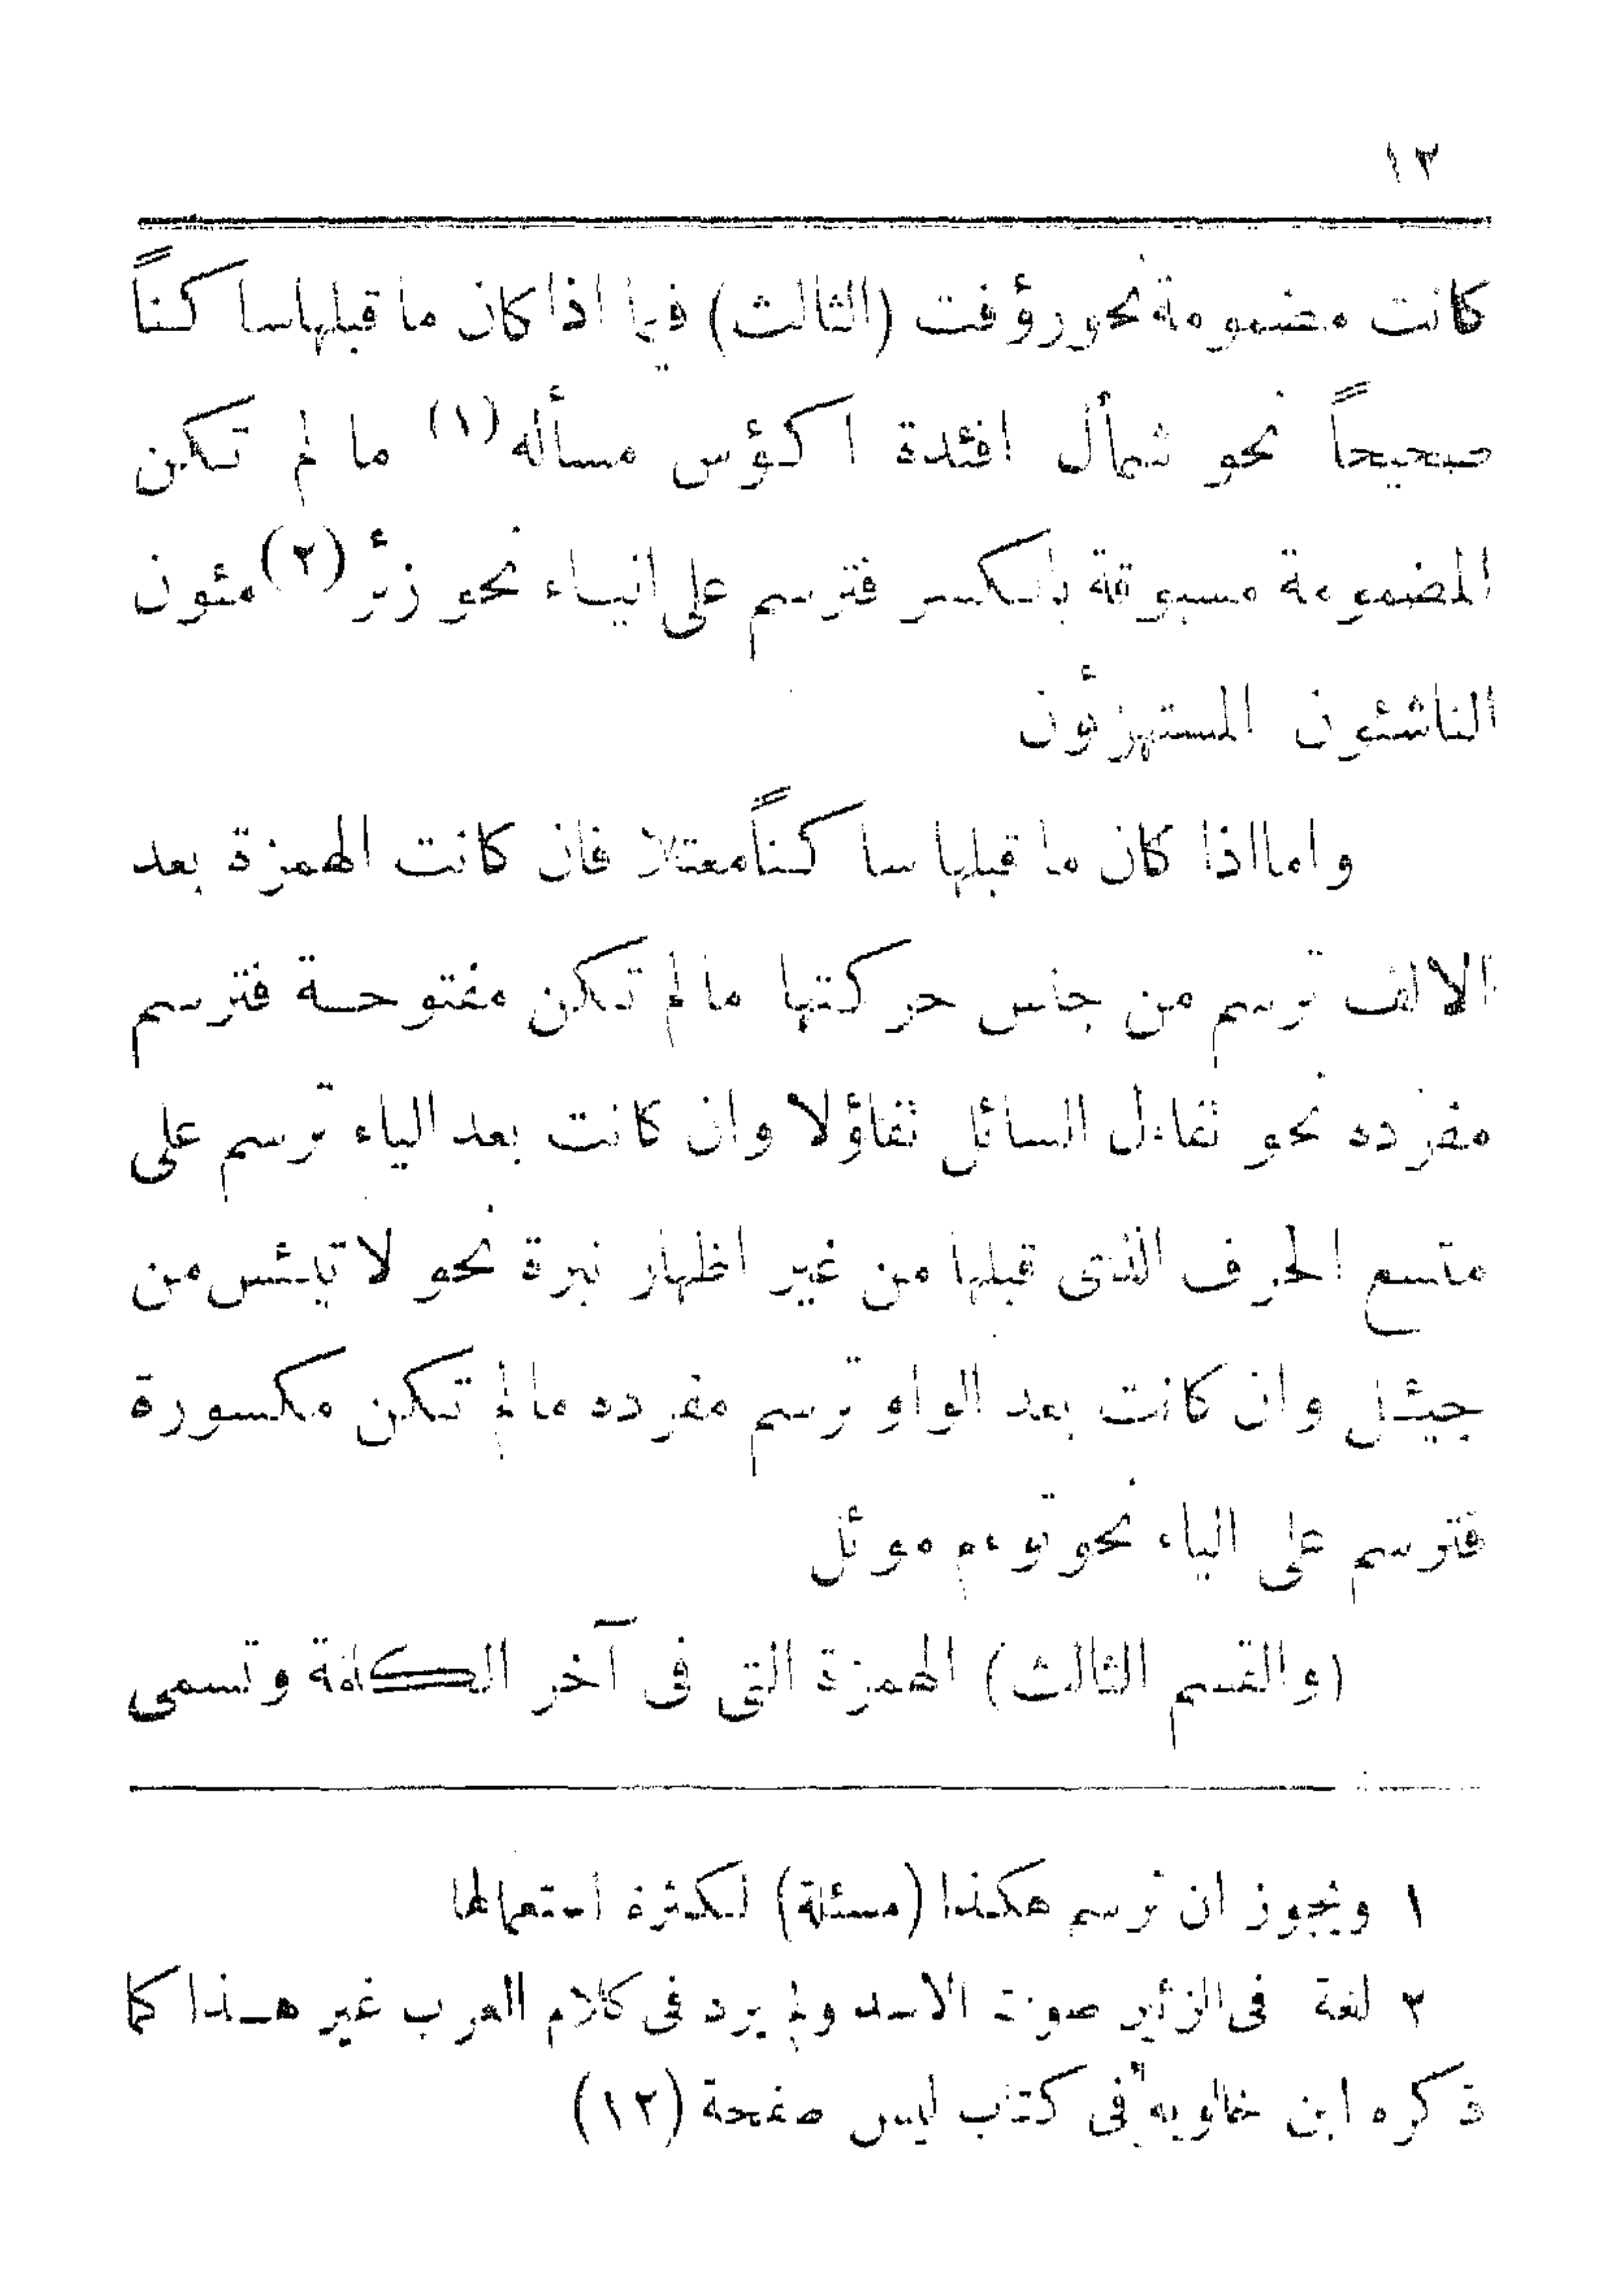 ١٢
كانت مضمومة نحو رؤفت (الثالث) فيما اذا كان ما قبلها ساكناً
صحيحاً نحو شمأل افئدة اكؤس مسأله (١) ما لم تكن
المضمومة مسبوقة بالكسر فترسم على الياء نحو زئر (٢) مئون
الناشئون المستهزؤن
واما اذا كان ما قبلها ساكناً معتلا فان كانت الهمزة بعد
الالف ترسم من جنس حركتها ما لم تكن مفتوحة فترسم
مفرده نحو تفاءل السائل تفاؤلا وان كانت بعد الياء ترسم على
متسع الحرف الذى قبلها من غير اظهار نبرة نحو لا تيئس من
جيئل وان كانت بعد الواو ترسم مفرده ما لم تكن مكسورة
فترسم على الياء نحو توءم موئل
(والقسم الثالث) الهمزة التى فى آخر الكلمة وتسمى
١ ويجوز ان ترسم هكذا (مسئلة) لكثرة استعمالها
٢ لغة فى الزئير صوت الاسد ولم يرد فى كلام العرب غير هذا كما
ذكره ابن خالويه فى كتاب ليس صفحة (١٢)